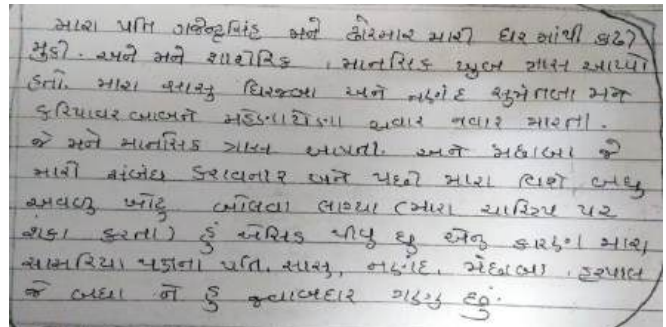 મારા પતિ ગજેન્દ્રસિંહ મને ઢોરમાર મારી ઘર માંથી કાઢી
મુકી. અને મને શારીરિક, માનસિક ખુબ ત્રાસ આપ્યો
હતો. મારા સાસુ ધિરજબા અને નણંદ સુમેતબા મને
કરિયાવર બાબતે મહેણાટોણા અવાર નવાર મારતા.
જે મને માનસિક ત્રાસ આપતી. અને મહાબા જે
મારી સંબંધ કરાવનાર અને પછી મારા વિશે બધુ
અવળુ ખોટુ બોલવા લાગ્યા (મારા ચારિત્ર પર
શંકા કરતા) હું એસિડ પીવુ છુ એનુ કારણ મારા
સાસરિયા પક્ષના પતિ, સાસુ, નણંદ, મેહાબા, હરપાલ
જે બધા ને હુ જવાબદાર ગણુ છું.